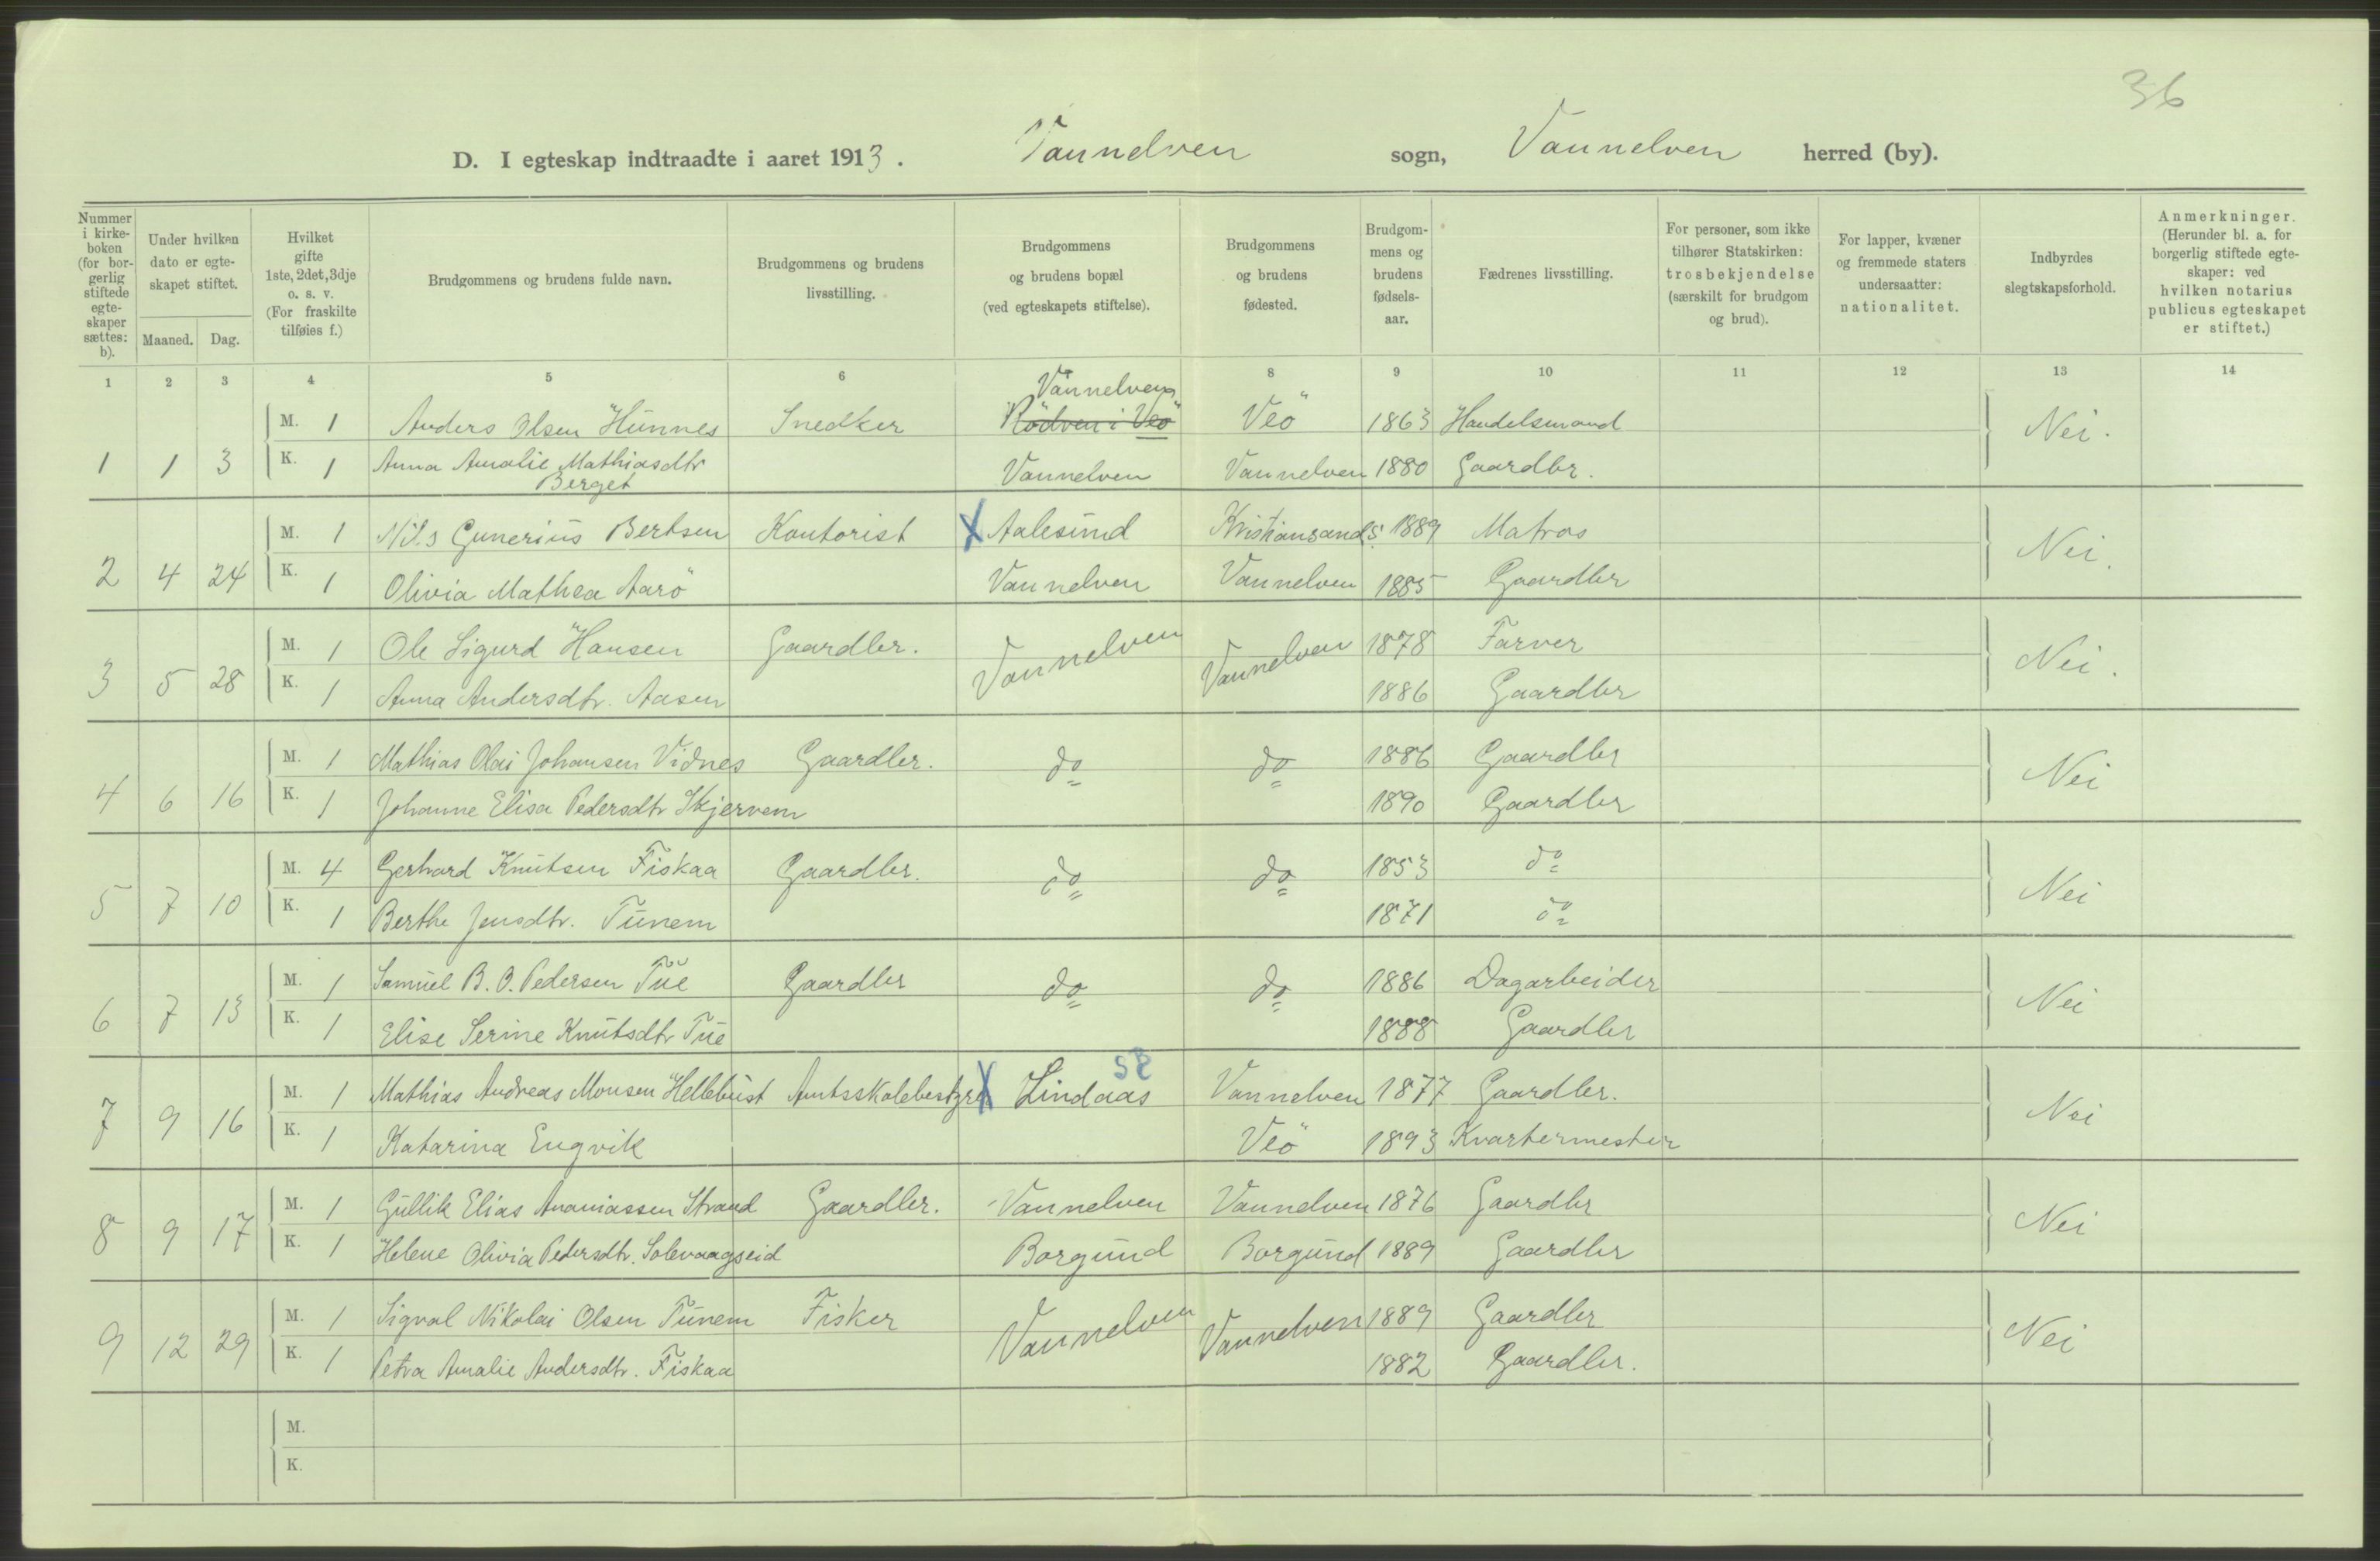 36
D. I egteskap indtraadte i aaret 1913. Vannelven sogn, Vannelven herred (by).
Nummer i kirke-boken (for bor-gerlig stiftede egte-skaper sættes: b).
Under hvilken dato er egte-skapet stiftet.
Maaned. Dag.
Hvilket gifte 1ste, 2det, 3dje o. s. v. (For fraskilte tilføies f.)
Brudgommens og brudens fulde navn.
Brudgommens og brudens livsstilling.
Brudgommens og brudens bopæl (ved egteskapets stiftelse).
Brudgommens og brudens fødested.
Brudgom-mens og brudens fødsels-aar.
Fædrenes livsstilling.
For personer, som ikke tilhører Statskirken: trosbekjendelse (særskilt for brudgom og brud).
For lapper, kvæner og fremmede staters undersaatter: nationalitet.
Indbyrdes slegtskapsforhold.
Anmerkninger. (Herunder bl. a. for borgerlig stiftede egte-skaper: ved hvilken notarius publicus egteskapet er stiftet.)
1 2 3 4 5 6 8 9 10 11 12 13 14
Vannelven
M. 1 Anders Olsen Hunnes Snedker Rödven i Veö Veö 1863 Handelsmand Nei.
1 1 3 K. 1 Anna Amalie Mathiasdtr Vannelven Vannelven 1880 Gaardbr.
Berget
M. 1 Nils Gunerius Bertsen Kontorist X Aalesund Kristiansand S. 1889 Matros Nei.
2 4 24 K. 1 Olivia Mathea Aarö Vannelven Vannelven 1885 Gaardbr
M. 1 Ole Sigurd Hansen Gaardbr. Vannelven Vannelven 1878 Farver Nei.
3 5 28 K. 1 Anna Andersdtr. Aasen 1886 Gaardbr
M. 1 Mathias Olai Johansen Vidnes Gaardbr. do do 1886 Gaardbr Nei
4 6 16 K. 1 Johanne Elisa Pedersdtr Skjervem 1890 Gaardbr
M. 4 Gerhard Knutsen Fiskaa Gaardbr. do do 1853 do Nei
5 7 10 K. 1 Berthe Jensdtr. Tunem 1871 do
M. 1 Samuel B. O. Pedersen Tue Gaardbr do do 1886 Dagarbeider Nei
6 7 13 K. 1 Elise Serine Knutsdtr Tue 1888 Gaardbr
M. 1 Mathias Andreas Monsen Hellebust Amtsskolebestyrer X Lindaas Vannelven 1877 Gaardbr. Nei
7 9 16 K. 1 Katarina Engvik Veö 1893 Kvartermester
M. 1 Gullik Elias Ananiassen Strand Gaardbr. Vannelven Vannelven 1876 Gaardbr Nei
8 9 17 K. 1 Helene Olivia Pedersdtr. Solevaagseid Borgund Borgund 1889 Gaardbr
M. 1 Sigval Nikolai Olsen Tunem Fisker Vannelven Vannelven 1889 Gaardbr Nei
9 12 29 K. 1 Petra Amalie Andersdtr. Fiskaa 1882 Gaardbr.
M.
K.